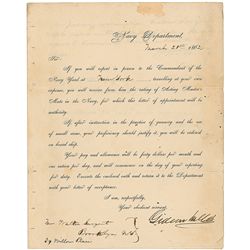 Navy Department,
March 21st 1862
Sir:
If you will report in person to the Commandant of the
Navy Yard at New York travelling at your own
expense, you will receive from him the rating of Acting Master's
Mate in the Navy, for which this letter of appointment will be
authority.
If after instruction in the practice of gunnery and the use
of small arms, your proficiency should justify it, you will be ordered
on board ship.
Your pay and allowance will be forty dollars per month and
one ration per day, and will commence on the day of your reporting
for duty. Execute the enclosed oath and return it to the Department
with your letter of acceptance.
I am, respectfully,
Your obedient servant,
Gideon Welles
Mr. Walter Sargent
Brooklyn N.Y.
29 Willow Place